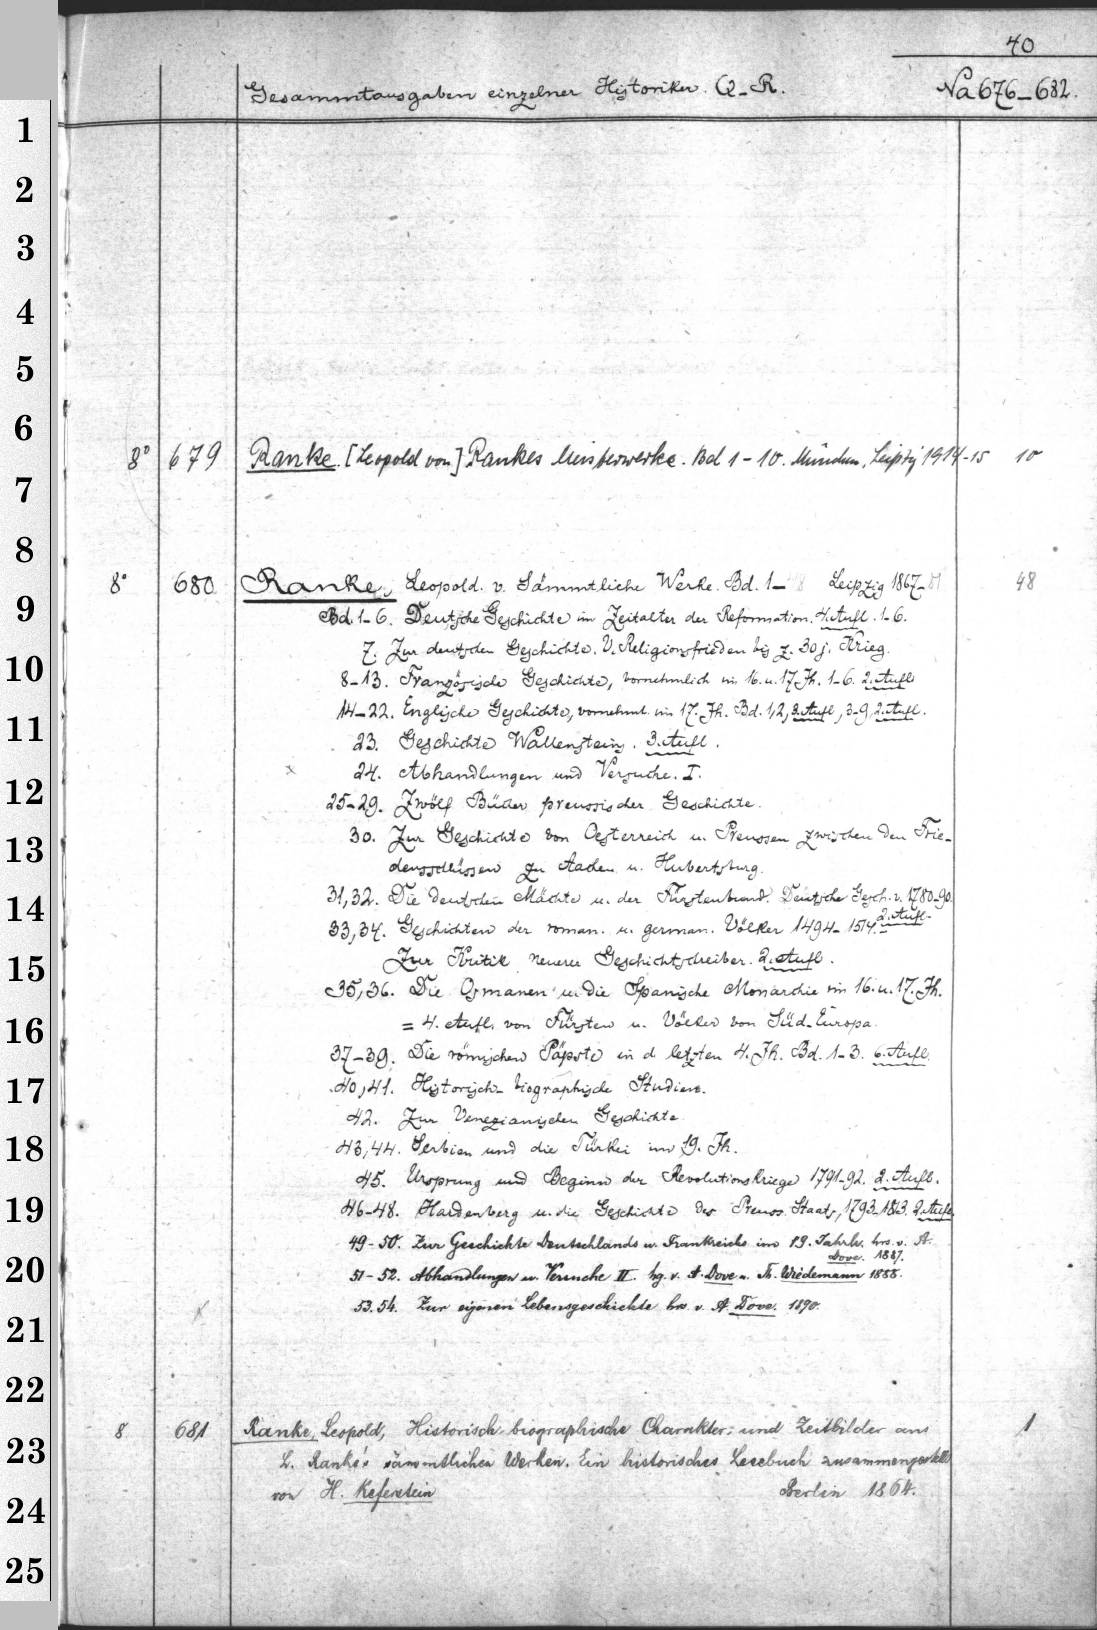 40
Gesammtausgaben einzelner Historiker. Q-R. Na 676-682.
1
2
3
4
5
6
8° 679 Ranke. [Leopold von] Rankes Meisterwerke. Bd 1-10. München, Leipzig 1914-15 10
7
8
8° 680 Ranke, Leopold. v. Sämmtliche Werke. Bd. 1-48 Leipzig 1867-81 48
9 Bd. 1-6. Deutsche Geschichte im Zeitalter der Reformation. 4. Aufl. 1-6.
7. Zur deutschen Geschichte. V. Religionsfrieden bis z. 30j. Krieg.
10 8-13. Französische Geschichte, vornehmlich im 16. u. 17. Jh. 1-6. 2. Aufl.
14-22. Englische Geschichte, vornehml. im 17. Jh. Bd. 1,2, 3. Aufl., 3-9, 2. Aufl.
11 23. Geschichte Wallensteins. 3. Aufl.
24. Abhandlungen und Versuche. I.
12 25-29. Zwölf Bücher preussischer Geschichte.
13 30. Zur Geschichte von Oesterreich u. Preussen zwischen den Frie-
densschlüssen zu Aachen u. Hubertsburg.
14 31,32. Die deutschen Mächte u. der Fürstenbund. Deutsche Gesch. v. 1780-90.
2. Aufl.
33,34. Geschichten der roman. u. german. Völker 1494-1514.
15 Zur Kritik neuerer Geschichtschreiber. 2. Aufl.
35,36. Die Osmanen u. die Spanische Monarchie im 16. u. 17. Jh.
16 = 4. Aufl. von Fürsten u. Völker von Süd-Europa.
37-39. Die römischen Päpste in d letzten 4. Jh. Bd. 1-3. 6. Aufl.
17 40,41. Historisch-biographische Studien.
42. Zur Venezianischen Geschichte.
18 43,44. Serbien und die Türkei im 19. Jh.
45. Ursprung und Beginn der Revolutionskriege 1791-92. 2. Aufl.
19 46-48. Hardenberg u. die Geschichte des Preuss. Staats, 1793-1813. 2. Aufl.
49-50. Zur Geschichte Deutschlands u. Frankreichs im 19. Jahrh. hrs. v. A.
Dove. 1887.
20 51-52. Abhandlungen u. Versuche II. hg. v. A. Dove u. Th. Wiedemann 1888.
53.54. Zur eigenen Lebensgeschichte hrs. v. A. Dove. 1890.
21
22
8 681 Ranke, Leopold, Historisch-biographische Charakter- und Zeitbilder aus 1
23 L. Ranke's sämmtlichen Werken. Ein historisches Lesebuch zusammengestellt
von H. Keferstein Berlin 1864.
24
25